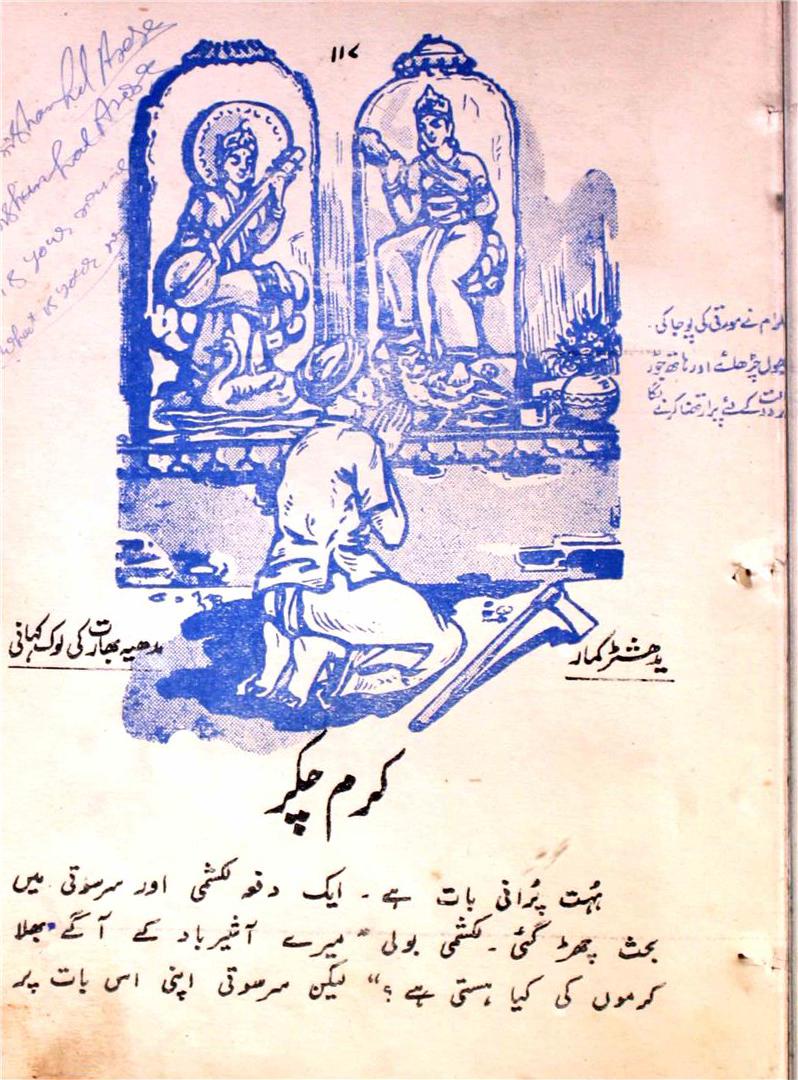 ۱۱۷
Shankal
Shankal
is your name
what is your
رام نے مورتی کی پوجا کی۔
پھول چڑھائے اور ہاتھ جوڑ
کے لئے پرارتھنا کرنے لگا
یدھشٹر کمار
مدھیہ بھارت کی لوک کہانی
کرم چکر
بُہت پُرانی بات ہے۔ ایک دفعہ لکشمی اور سرسوتی میں
بحث چھڑ گئی۔ لکشمی بولی "میرے آشیرباد کے آگے بھلا
کرموں کی کیا ہستی ہے؟" لیکن سرسوتی اپنی اس بات پر